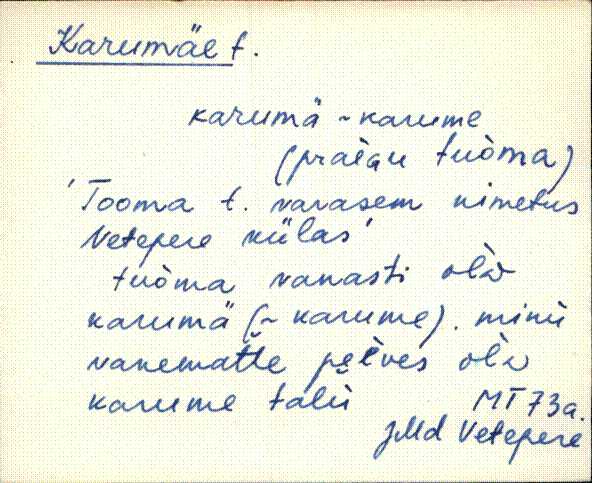 Karumäe t.
karumä ~ karume
(praègu tuòma)
'Tooma t. varasem nimetus
Vetepere külas'
tuòma vanasti olìv
karumä (~ karume). minù
vanematte pèives olìv
karume talù MT 73a.
JMd Vetepere